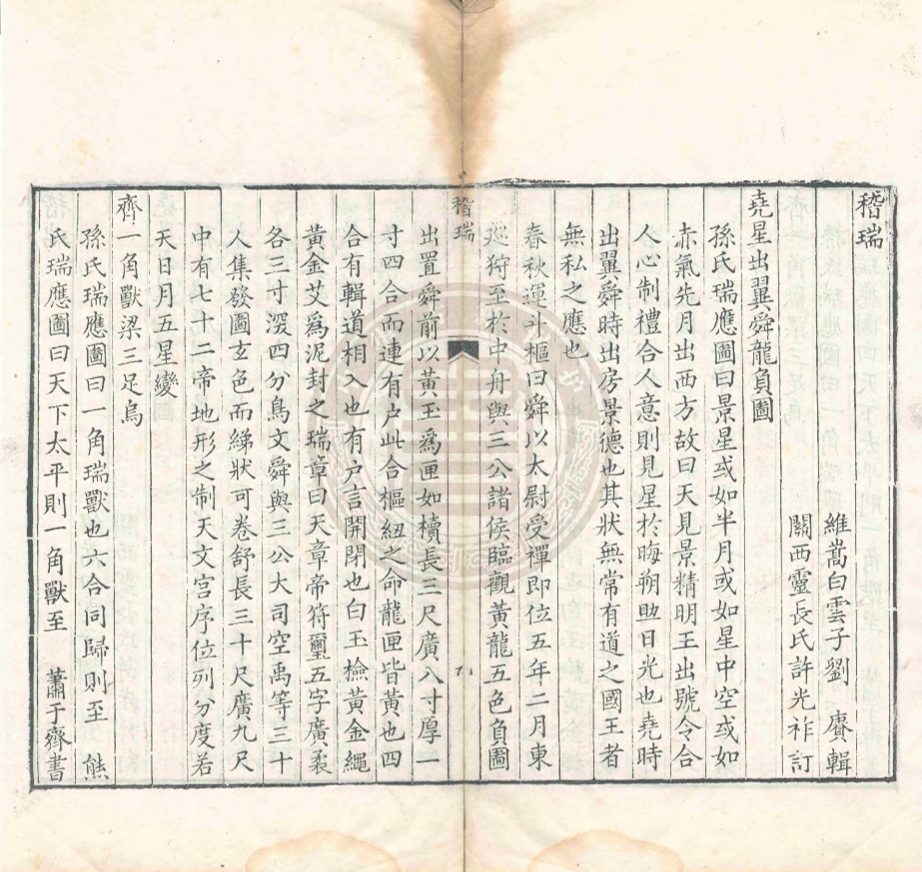 稽瑞
維嵩白雲子劉賡輯
關西靈長氏許光祚訂
堯星出翼舜龍負圖
孫氏瑞應圖曰景星或如半月或如星中空或如
赤氣先月出西方故曰天見景精明王出號令合
人心制禮合人意則見星於晦朔助日光也堯時
出翼舜時出房景德也其狀無常有道之國王者
無私之應也
春秋運斗樞曰舜以太尉受禪即位五年二月東
廵狩至於中舟與三公諸侯臨觀黃龍五色負圖
稽瑞
出置舜前以黃玉爲匣如櫝長三尺廣八寸厚一
寸四合而連有户此合樞紐之命龍匣皆黃也四
合有輯道相入也有户言開閉也白玉檢黃金繩
黃金艾爲泥封之瑞章曰天章帝符璽五字廣袤
各三寸深四分鳥文舜與三公大司空禹等三十
人集發圖玄色而綈狀可卷舒長三十尺廣九尺
中有七十二帝地形之制天文宫序位列分度若
天日月五星變
齊一角獸梁三足烏
孫氏瑞應圖曰一角瑞獸也六合同歸則至 熊
氏瑞應圖曰天下太平則一角獸至 蕭子齊書